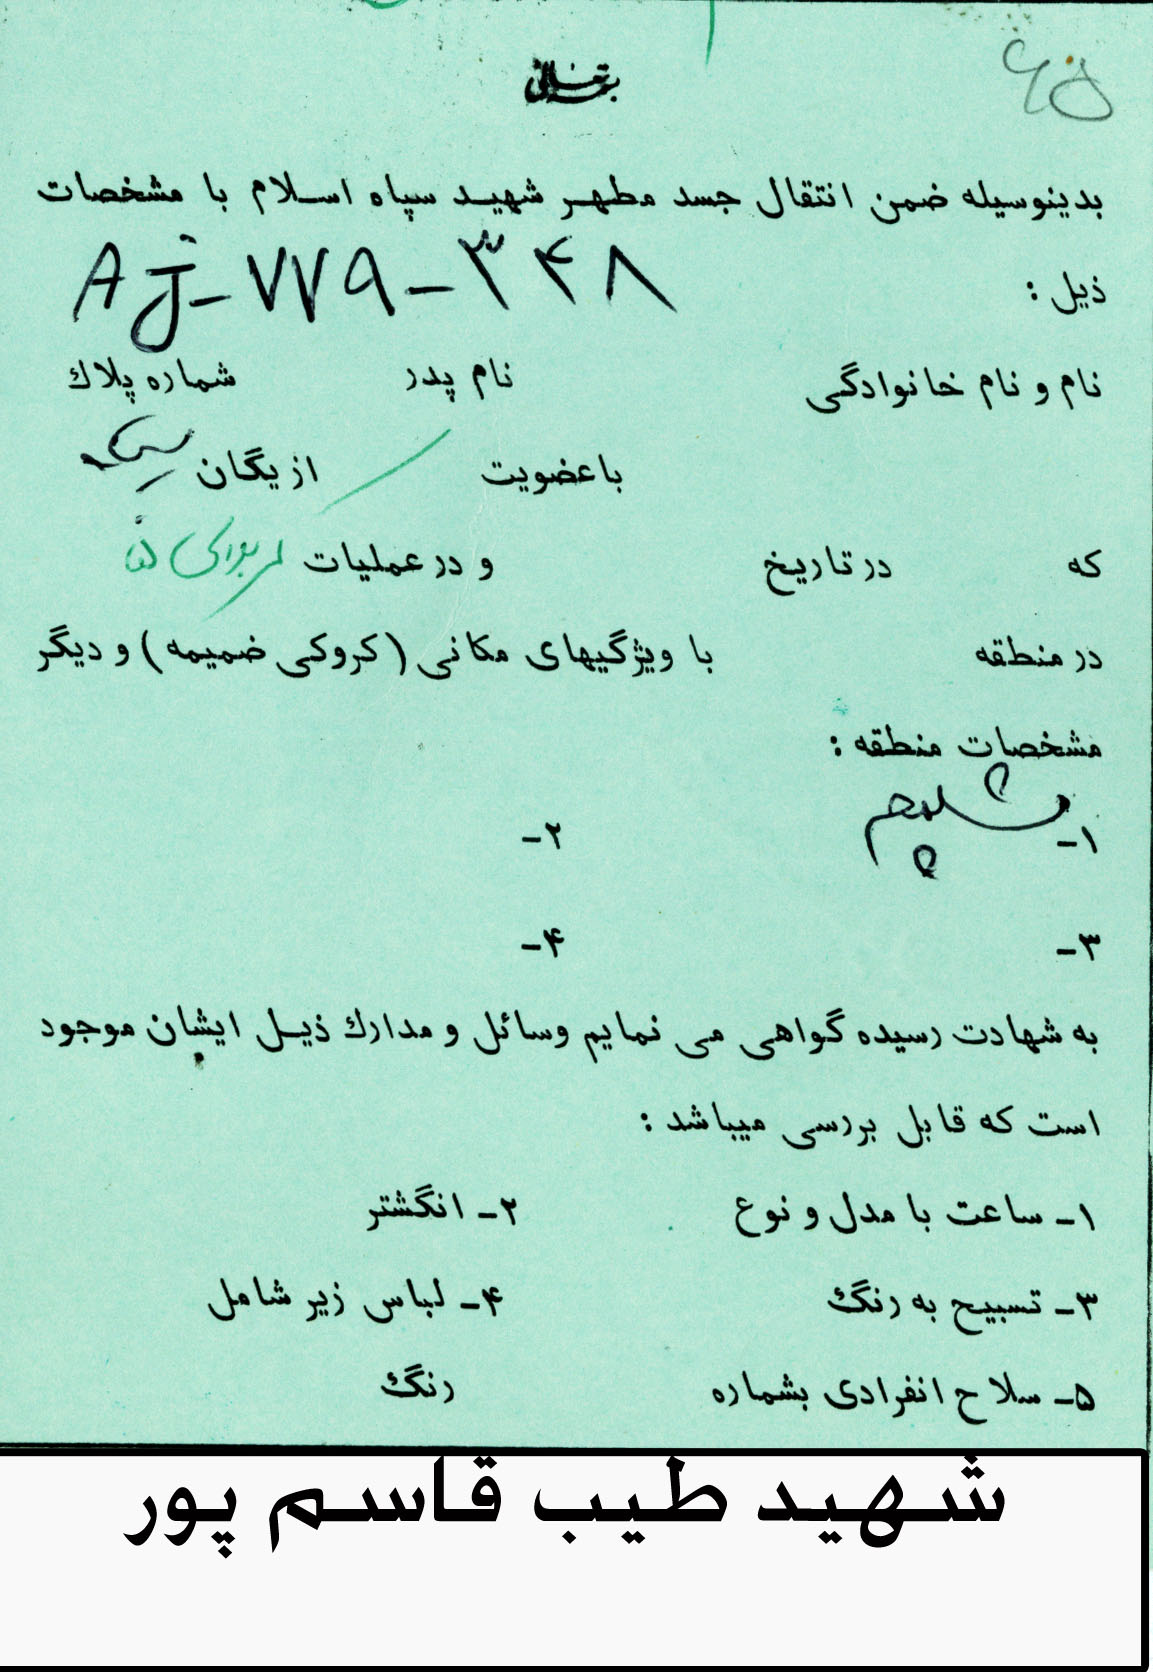 بسمه تعالی
۶۵
بدینوسیله ضمن انتقال جسد مطهر شهید سپاه اسلام با مشخصات
ذیل :
AJ-۷۷۹-۳۴۸
نام و نام خانوادگی نام پدر شماره پلاك
با عضویت از یگان
که در تاریخ و در عملیات کربلای ۵
در منطقه با ویژگیهای مکانی (کروکی ضمیمه) و دیگر
مشخصات منطقه :
۱- شلمچه ۲-
۳- ۴-
به شهادت رسیده گواهی می نمایم وسائل و مدارك ذیل ایشان موجود
است که قابل بررسی میباشد :
۱- ساعت با مدل و نوع ۲- انگشتر
۳- تسبیح به رنگ ۴- لباس زیر شامل
۵- سلاح انفرادی بشماره رنگ
شهید طیب قاسم پور